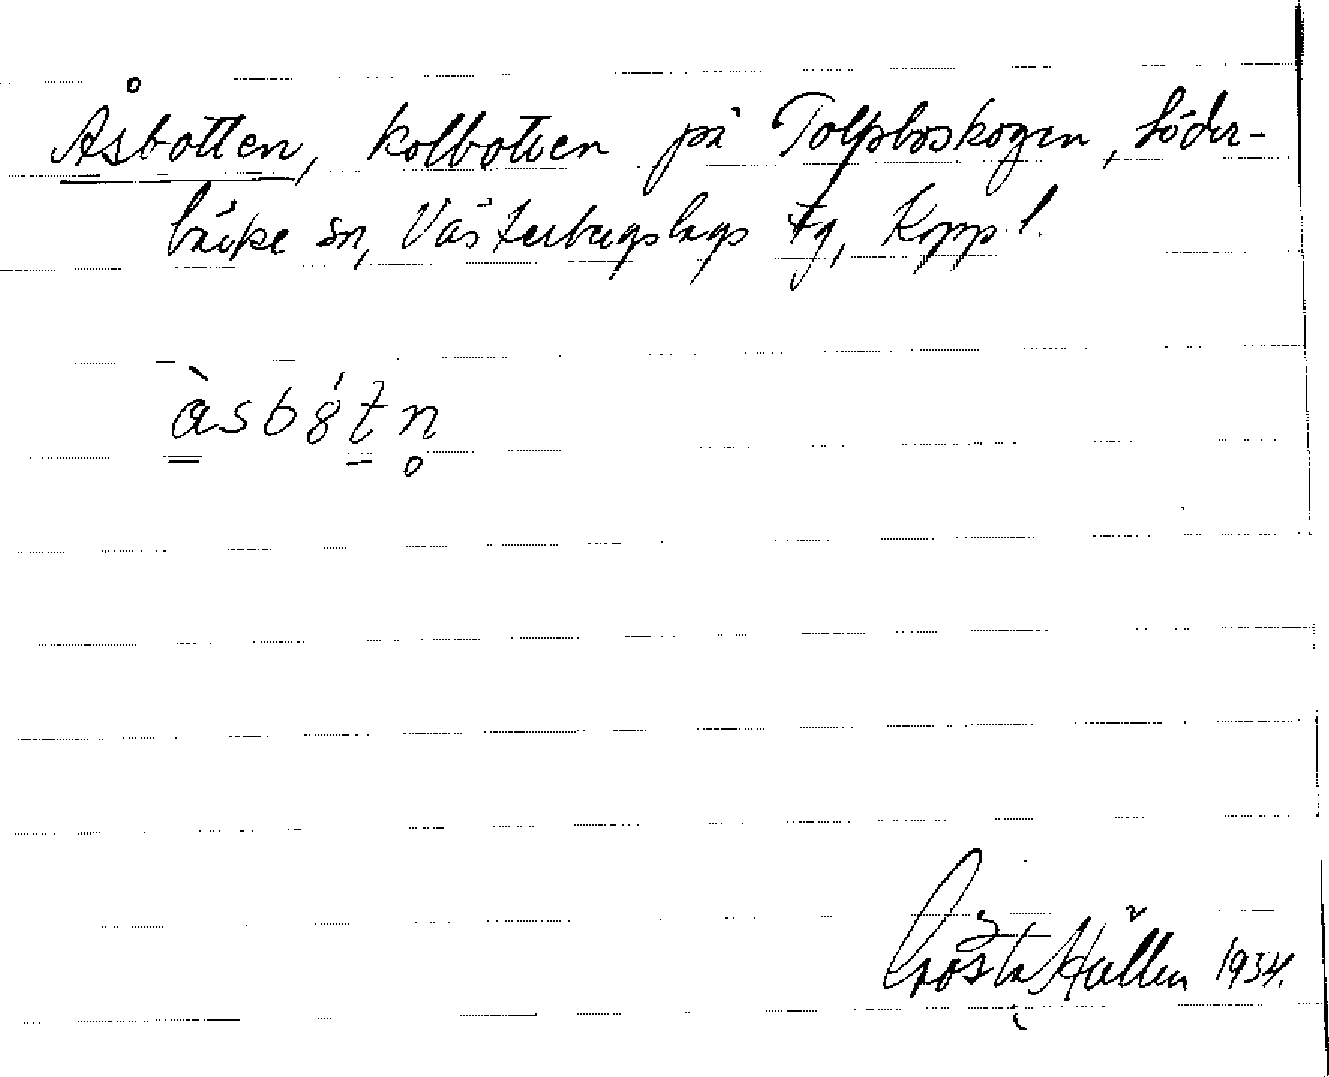 Åsbotten, kolbotten på Tolfsboskogen, Söder-
bärke sn, Västerbergslags fg, Kopp. l.
àsbǻtn̥
Gösta Hållén 1934.